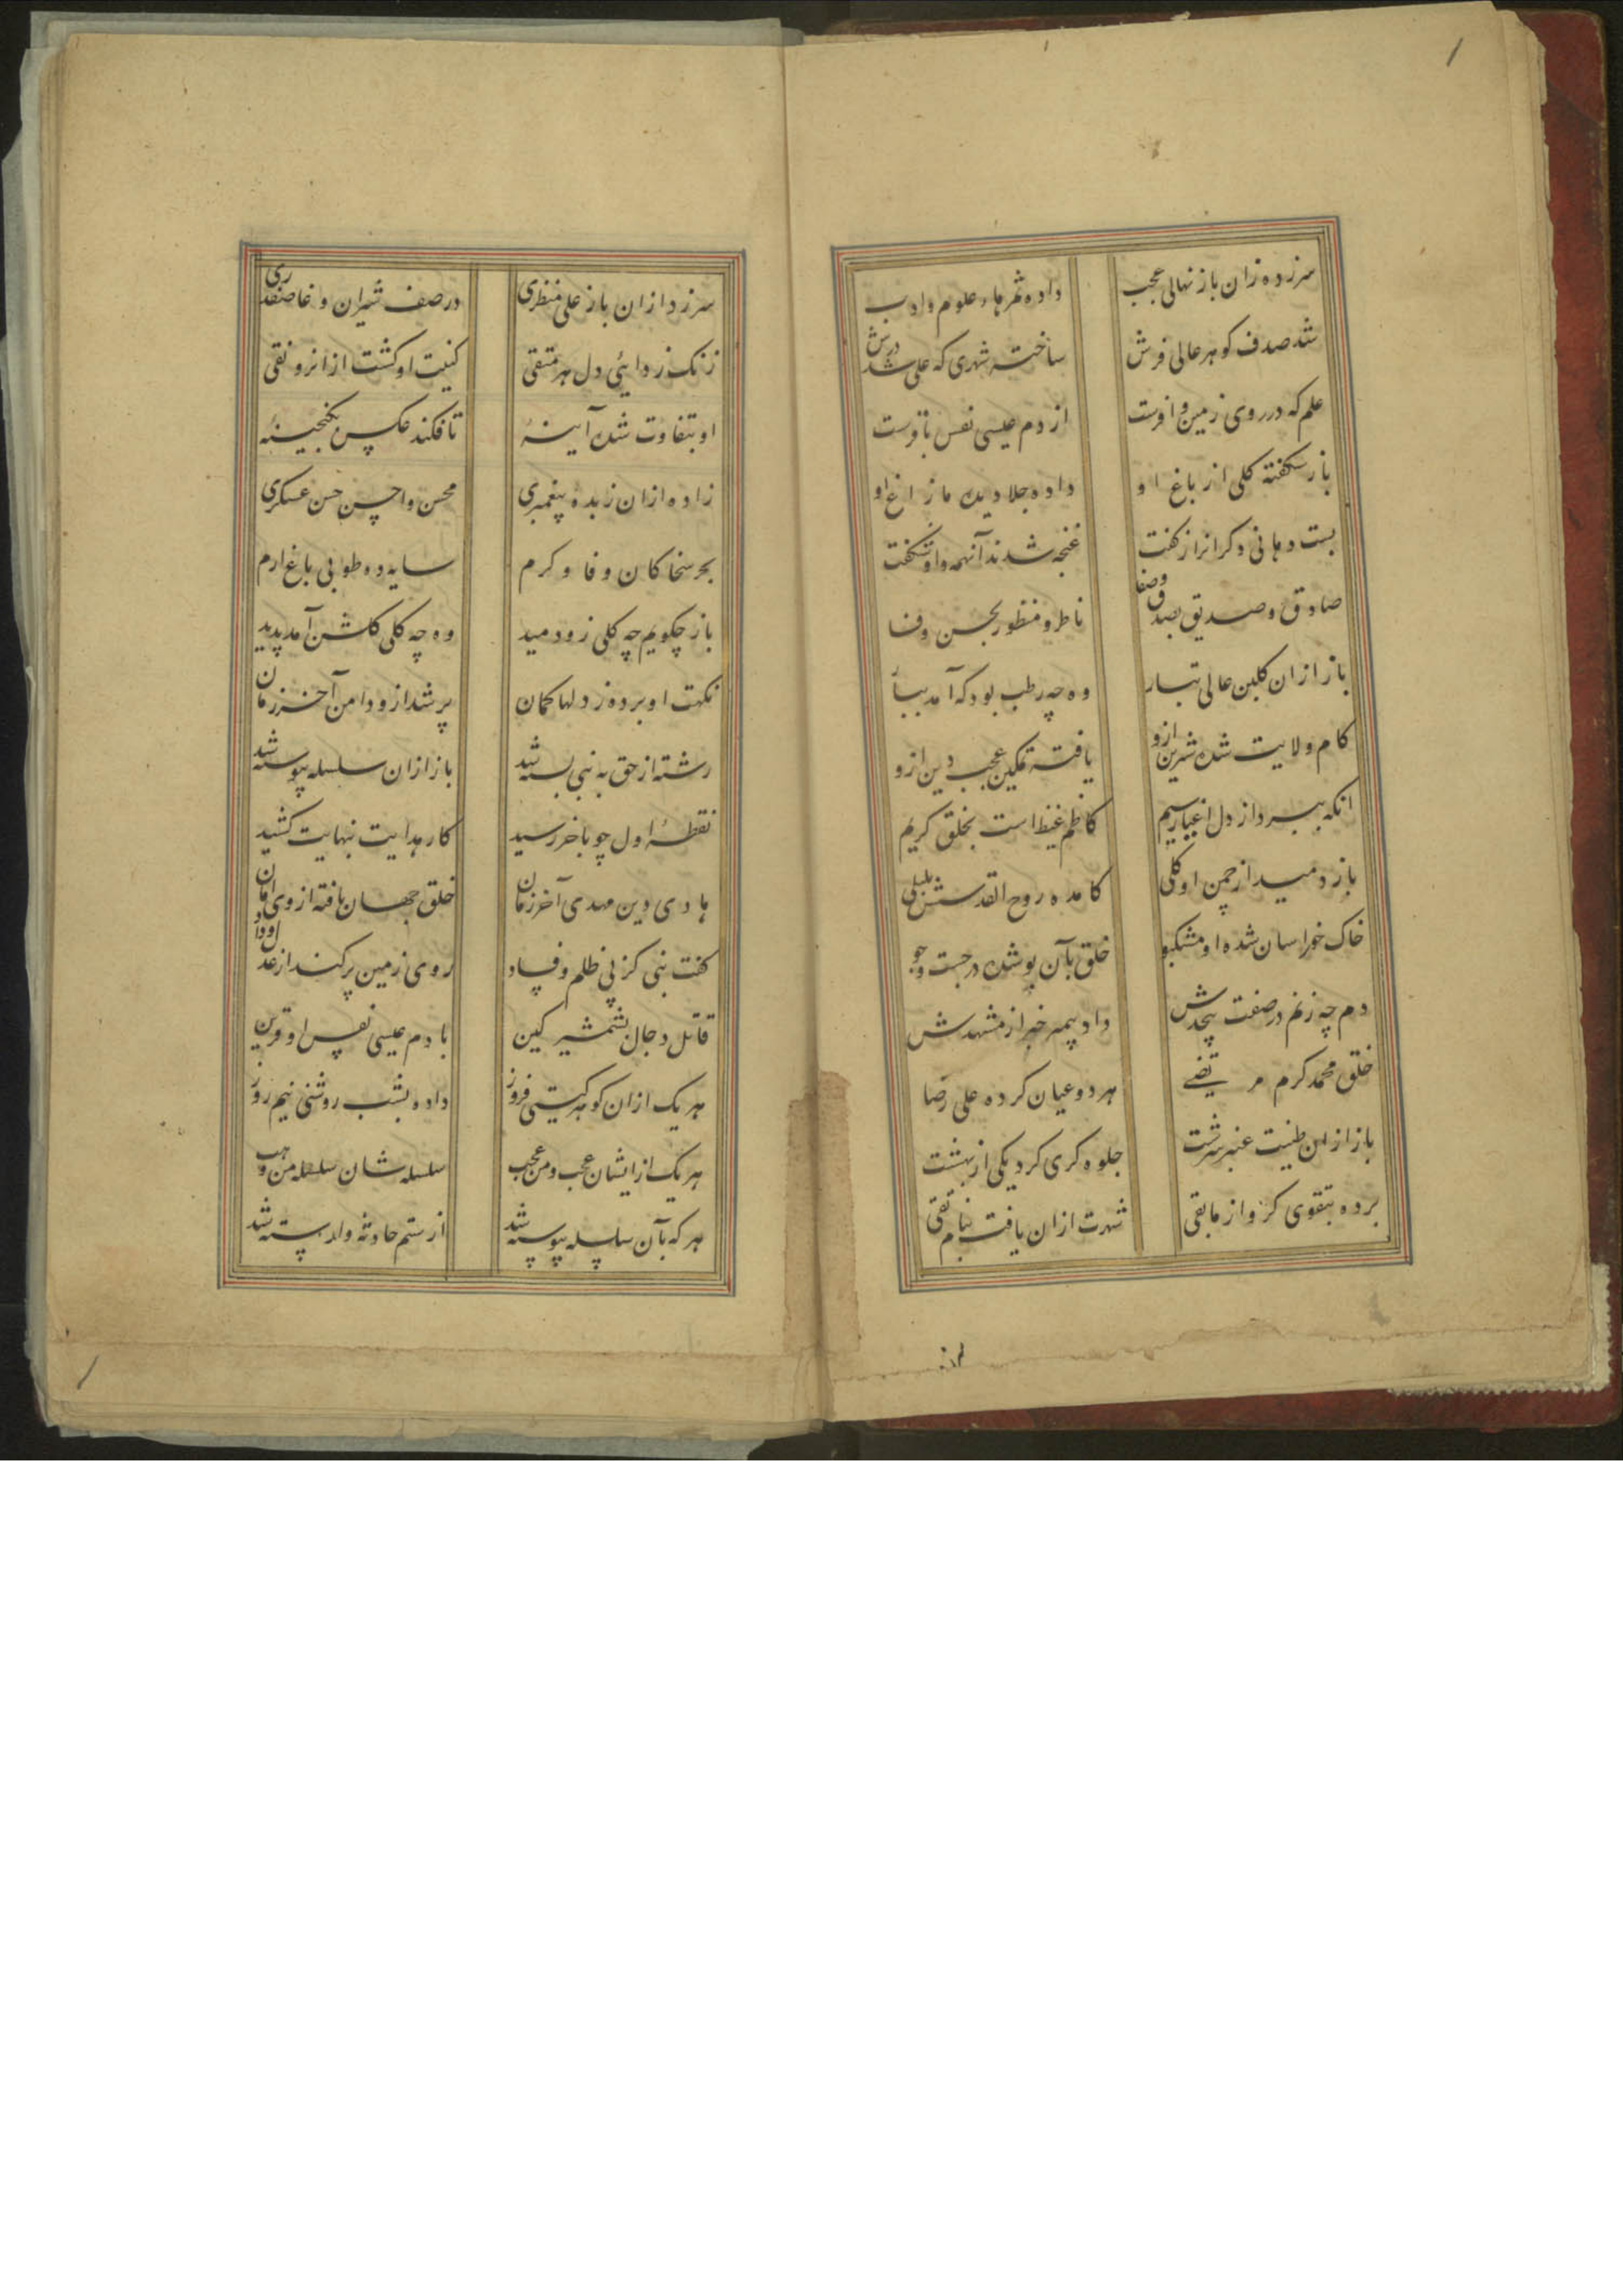 سر زده زان باز نهالی عجب داده ثمرهاء علوم و ادب
شد صدف کوهر عالی فرش ساخت شهری که علی شد درش
علم که در روی زمین وافرست از دم عیسی نفس باقرست
باز شکفته کلی از باغ او داده جلا دیده مازاغ او
بست دهانی دکرانرا ز کفت غنچه شدند آنهمه واو شکفت
صادق و صدیق بصدق و صفا ناظر و منظور بحسن وفا
باز ازان کلبن عالی تبار وه چه رطب بود که آمد ببار
کام ولایت شده شیرین ازو یافته تمکین عجب دین ازو
انکه ببرد از دل اغیار بیم کاظم غیظ است بخلق کریم
باز دمید از چمن او کلی کامده روح القدسش بلبلی
خاک خراسان شده او مشکبو خلق بآن بو شده در جست و جو
دم چه زنم در صفت بیحدش داد پیمبر خبر از مشهدش
خلق محمد کرم مرتضی هر دو عیان کرده علی رضا
باز ازان طنیت عنبر سرشت جلوه کری کرد یکی از بهشت
برده بتقوی کرو از مابقی شهرت ازان یافت بنام تقی
سر زد ازان باز علی منظری در صف شیران وغا صفدری
زنک زدائی دل هر متقی کنیت او کشت ازانرو نقی
او بتفاوت شده آیینهٔ تا فکند عکس بکنجینهٔ
زاده ازان زبده پیغمبری محسن و احسن حسن عسکری
بحر سخا کان وفا و کرم سایه ده طوبی باغ ارم
باز چکویم چه کلی زو دمید وه چه کلی کلشن آمد پدید
نکهت او برده ز دلها کمان پر شد ازو دامن آخر زمان
رشته از حق به نبی بسته شد باز ازان سلسله پیوسته شد
نقطهٔ اول چو باخر رسید کار هدایت بنهایت کشید
هادی دین مهدی آخر زمان خلق جهان یافته از وی امان
کفت نبی کز پی ظلم و فساد روی زمین پر کند از عدل و داد
قاتل دجال بشمشیر کین با دم عیسی نفس او قرین
هر یک ازان کوهر کیتی فروز داده بشب روشنی نیم روز
هر یک از ایشان عجب و من عجب سلسله شان سلسله من ذهب
هر که بآن سلسله پیوسته شد از ستم حادثه وارسته شد